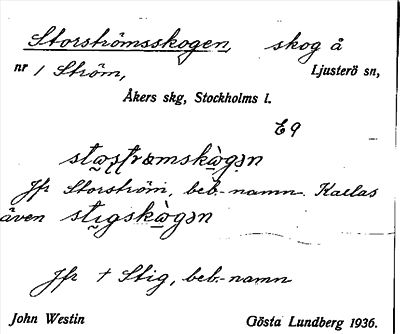 Storströmsskogen, skog å
nr 1 Ström, Ljusterö sn,
Åkers skg, Stockholms l.
E9
Jfr Storström, beb.-namn. Kallas
även stigskògən
Jfr † Stig, beb.-namn
John Westin Gösta Lundberg 1936.